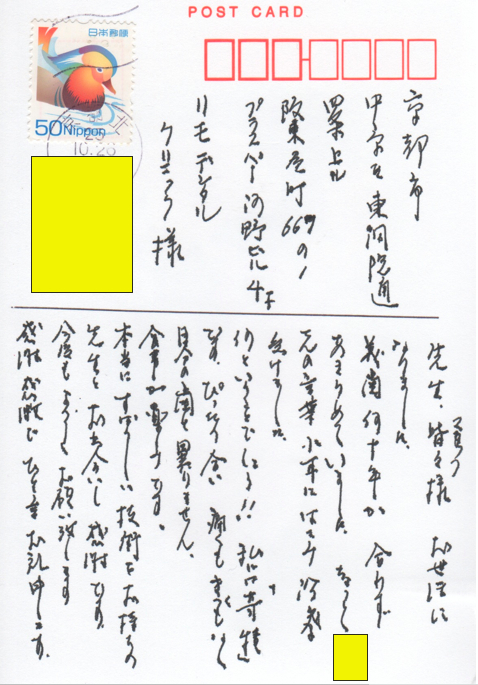 POST CARD
日本郵便
50 Nippon
10.28
京都市
中京区東洞院通
四条上ル
阪東屋町669の1
プラスパー河野ビル4F
リモデンタル
クリニック様
先生、皆々様 お世話に
なりました。
義歯何十年か 合わず
あきらめていました。
の言葉 小耳にはさみ 治療
受けました。
何ということでしょう!! 私には奇蹟
です。ぴったり合い 痛くもきつくもなく
自分の歯と異りません。
食事が楽しみです。
本当にすばらしい技術をお持ちの
先生とお出合いし 感謝です。
今後もよろしくお願い致します
感謝感謝でひと言お礼申します。